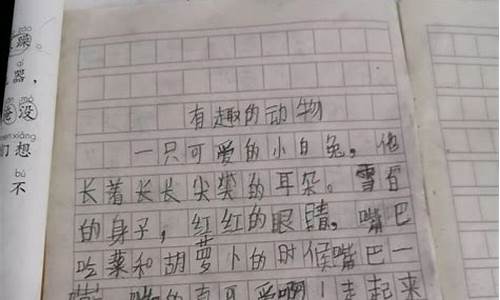 躁
器，
没
们想
不
有趣的动物
一只可爱的小白兔，他
长着长长尖尖的耳朵。雪白
的身子，红红的眼睛，嘴巴
吃菜和胡萝卜的时候嘴巴一
的真可爱啊！走起来